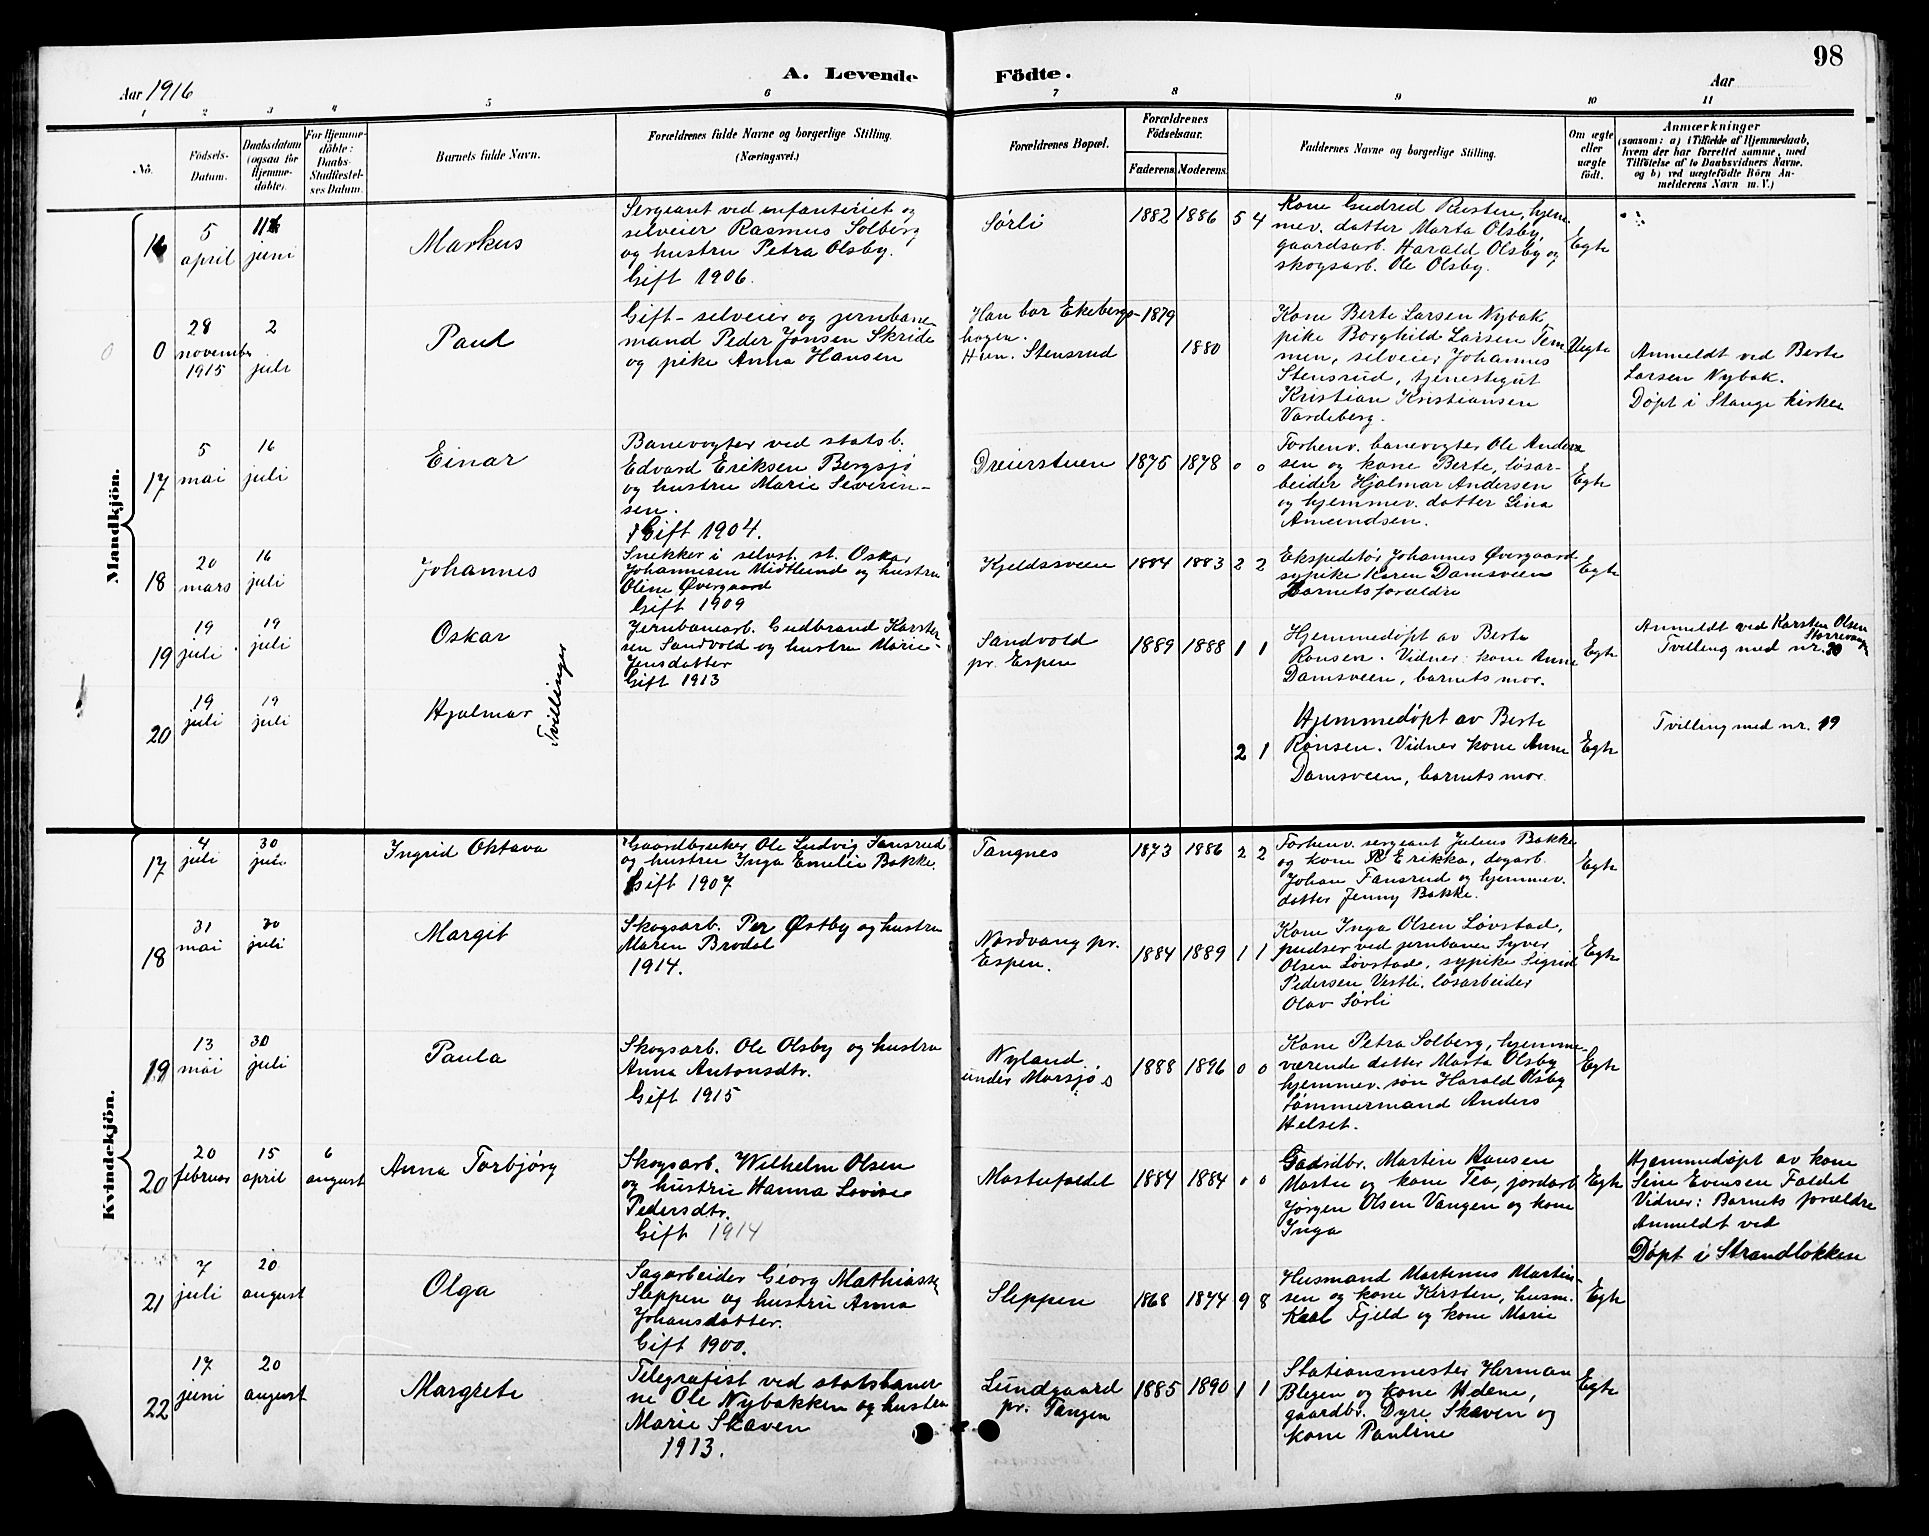 98
A. Levende Födte.
Aar 1916
Aar
1 2 3 4 5 6 7 8 9 10 11
No.
Födsels-
Datum.
Daabsdatum
(ogsaa for
Hjemme-
döbte).
For Hjemme-
döbte:
Daabs-
Stadfæstel-
ses Datum.
Barnets fulde Navn.
Forældrenes fulde Navne og borgerlige Stilling.
(Næringsvei.)
Forældrenes Bopæl.
Forældrenes
Födselsaar.
Faderens. Moderens.
Faddernes Navne og borgerlige Stilling.
Om ægte
eller
uægte
födt.
Anmærkninger
(saasom: a) i Tilfælde af Hjemmedaab,
hvem der har forrettet samme, med
Tilföielse af to Daabsvidners Navne,
og b) ved uægtefödte Börn An-
melderens Navn m. V.)
Mandkjön.
16
5
april
11
juni
Markus
Sergeant ved infanteriet og
selveier Rasmus Solberg
og hustru Petra Olsby.
Gift 1906.
Sørli
1882 1886 5 4
Kone Gudrid Rusten, hjem-
mev. datter Marta Olsby,
gaardsarb. Harald Olsby og
skogsarb. Ole Olsby.
Egte
0
28
november
1915
2
juli
Paul
Gift - selveier og jernbane-
mand Peder Jonsen Skride
og pike Anna Hansen
Han bor Ekebergs-
hagen.
Hun. Stensrud
1879
1880
Kone Berte Larsen Nybak
pike Borghild Larsen Tem-
men, selveier Johannes
Stensrud, tjenestegut
Kristian Kristiansen
Vardeberg.
Uegte
Anmeldt ved Berte
Larsen Nybak.
Døpt i Stange kirke
17
5
mai
16
juli
Einar
Banevogter ved statsb.
Edvard Eriksen Bergsjø
og hustru Marie Severin-
sen.
Gift 1904.
Dreierstuen
1875 1878 0 0
Forhenv. banevogter Ole Ander-
sen og kone Berte, løsar-
beider Hjalmar Andersen
og hjemmev. datter Lina
Amundsen.
Egte
18
20
mars
16
juli
Johannes
Snekker i selvst. st. Oskar
Johannesen Midtlund og hustru
Oline Øvergaard
Gift 1909
Kjeldsveen
1884 1883 2 2
Ekspeditør Johannes Øvergaard
sypike Karen Damsveen
Barnets forældre
Egte
19
19
juli
19
juli
Oskar
Tvillinger
Jernbanearb. Gudbrand Karsten-
sen Sandvold og hustru Marie
Jensdatter
Gift 1913
Sandvold
pr. Espen
1889 1888 1 1
Hjemmedøpt av Berte
Rønsen. Vidner: kone Anne
Damsveen, barnets mor.
Egte
Anmeldt ved Karsten Olsen
Tvilling med nr. 20
20
19
juli
19
juli
Hjalmar
2 1
Hjemmedøpt av Berte
Rønsen. Vidner kone Anne
Damsveen, barnets mor.
Egte
Tvilling med nr. 19
Kvindekjön.
17
4
juli
30
juli
Ingrid Oktava
Gaardbruker Ole Ludvig Fansrud
og hustru Inga Emelie Bakke.
Gift 1907
Tangnes
1873 1886 2 2
Forhenv. sergeant Julius Bakke
og kone Erikka, dagarb.
Johan Fansrud og hjemmev.
datter Jenny Bakke.
Egte
18
31
mai
30
juli
Margit
Skogsarb. Per Østby og hustru
Maren Brodal
1914.
Nordvang pr.
Espen.
1884 1889 1 1
Kone Inga Olsen Løvstad,
pudser ved jernbanen Syver
Olsen Løvstad, sypike Sigrid
Pedersen Vestli, løsarbeider
Olav Sørli
Egte
19
13
mai
30
juli
Paula
Skogsarb. Ole Olsby og hustru
Anna Antonsdtr.
Gift 1915
Nyland
under Morsjø
1888 1896 0 0
Kone Petra Solberg, hjemme-
værende datter Marta Olsby
hjemmev. søn Harald Olsby
tømmermand Anders
Helset.
Egte
20
20
februar
15
april
6
august
Anna Torbjørg
Skogsarb. Wilhelm Olsen
og hustru Hanna Lovise
Pedersdtr.
Gift 1914
Mostufaldet
1884 1884 0 0
Gaardbr. Martin Hansen
Mostu og kone Tea, jordarb.
Jørgen Olsen Vangen og kone
Inga
Egte
Hjemmedøpt av kone
Sine Evensen Faldet
Vidner: Barnets forældre
Anmeldt ved
Døpt i Strandløkken
21
7
juli
20
august
Olga
Sagarbeider Georg Mathiassen
Sleppen og hustru Anna
Johansdatter.
Gift 1900.
Sleppen
1868 1874 9 8
Husmand Martinus Martin-
sen og kone Kirsten, husm.
Karl Fjeld og kone Marie
Egte
22
17
juni
20
august
Margrete
Telegrafist ved statsbaner-
ne Ole Nybakken og hustru
Marie Skaven
1913.
Lundgaard
pr. Tangen
1885 1890 1 1
Stationsmester Herman
Blegen og kone Udene,
gaardbr. Dyre Skaven og
kone Pauline
Egte